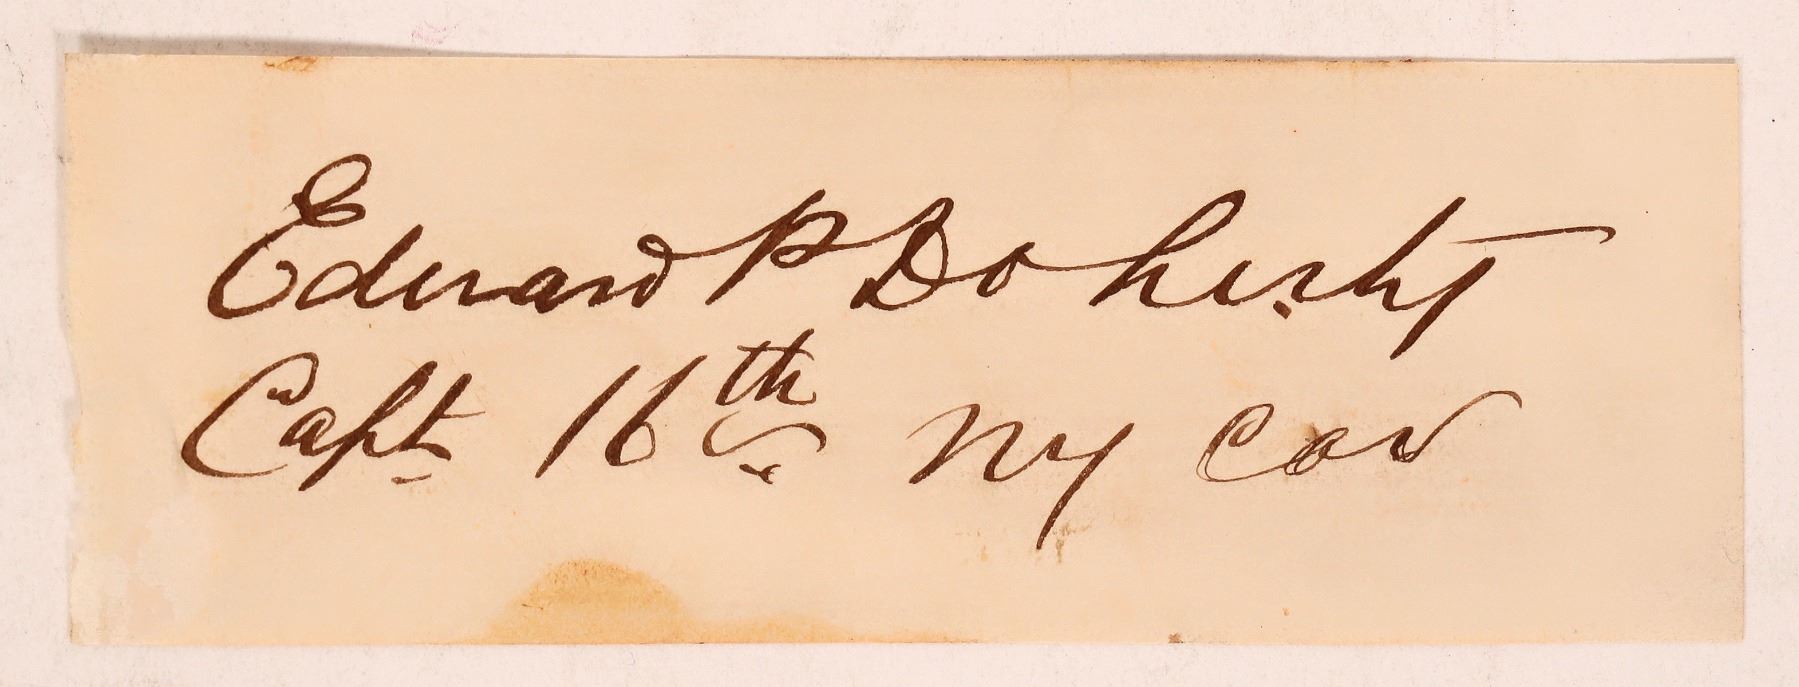 Edward P Doherty
Capt. 16th. NY Cav